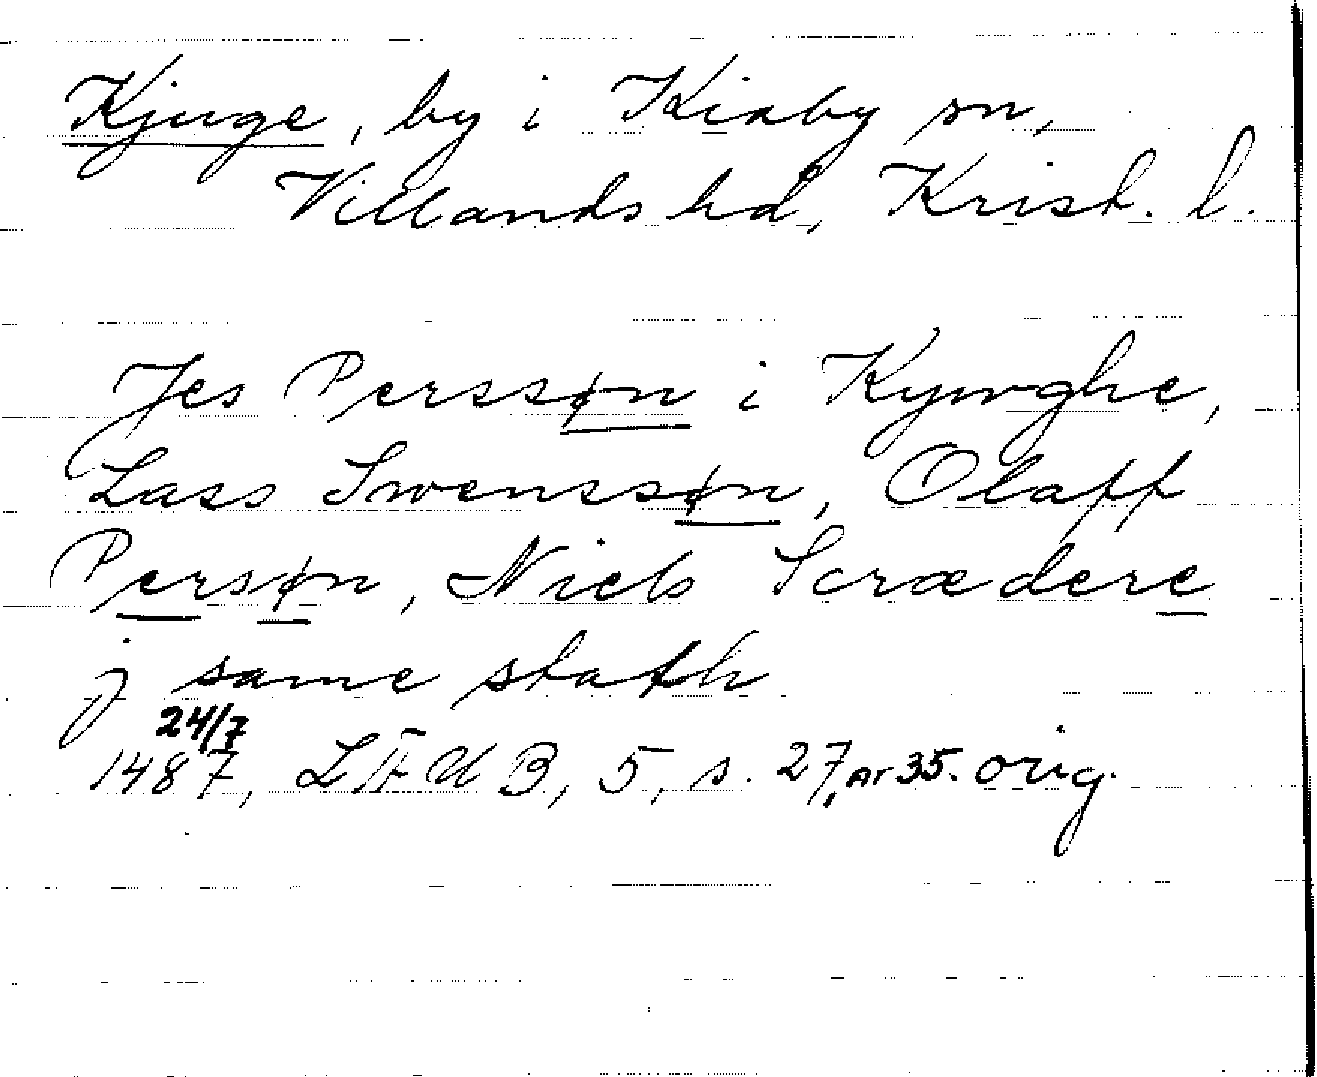 Kjuge, by i Kiaby sn,
Villands hd, Krist. l.
Jes Perssøn i Kywghe,
Lass Swenssøn, Olaff
Persøn, Niels Scrædere
j same stath
24/7
1487, LÄUB, 5, s. 27, Ar 35. orig.